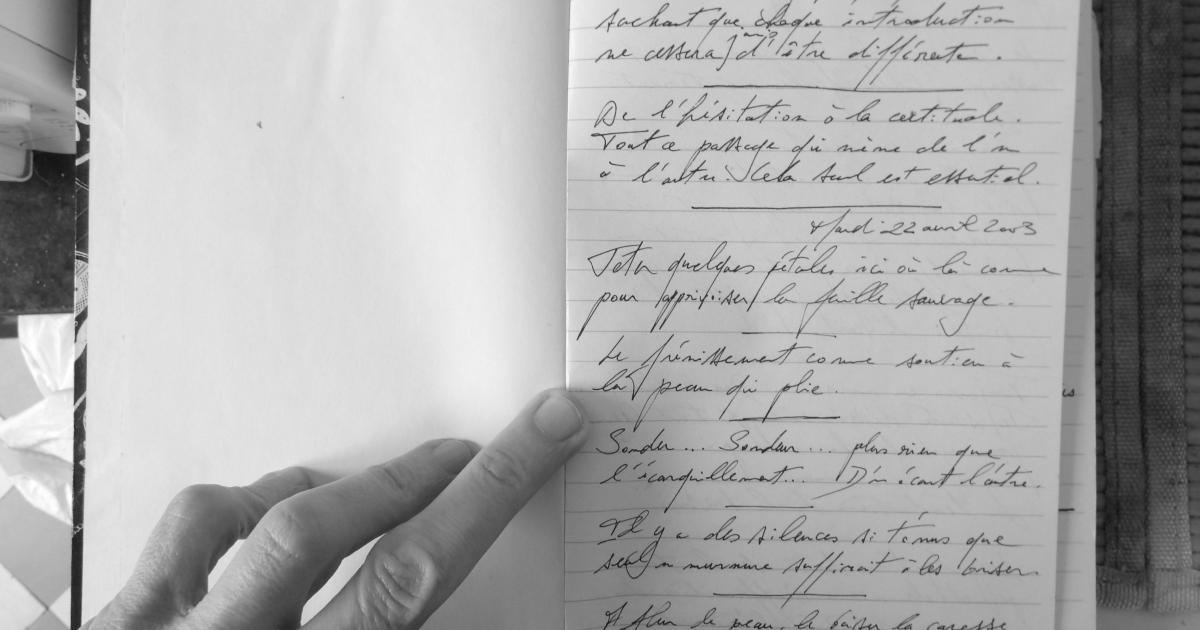 sachant que chaque introduction
ne cessera jamais d'être différente.
De l'hésitation à la certitude.
Tout ce passage qui mène de l'un
à l'autre. Cela seul est essentiel.
Mardi 22 avril 2003
Jeter quelques pétales ici où là comme
pour apprivoiser la faille sauvage.
Le frémissement comme soutien à
la peau qui plie.
Sonder... Sondeur... plus rien que
l'écarquillement... D'un écart l'autre.
Il y a des silences si ténus que
seul un murmure suffirait à les briser.
A fleur de peau, le baiser la caresse